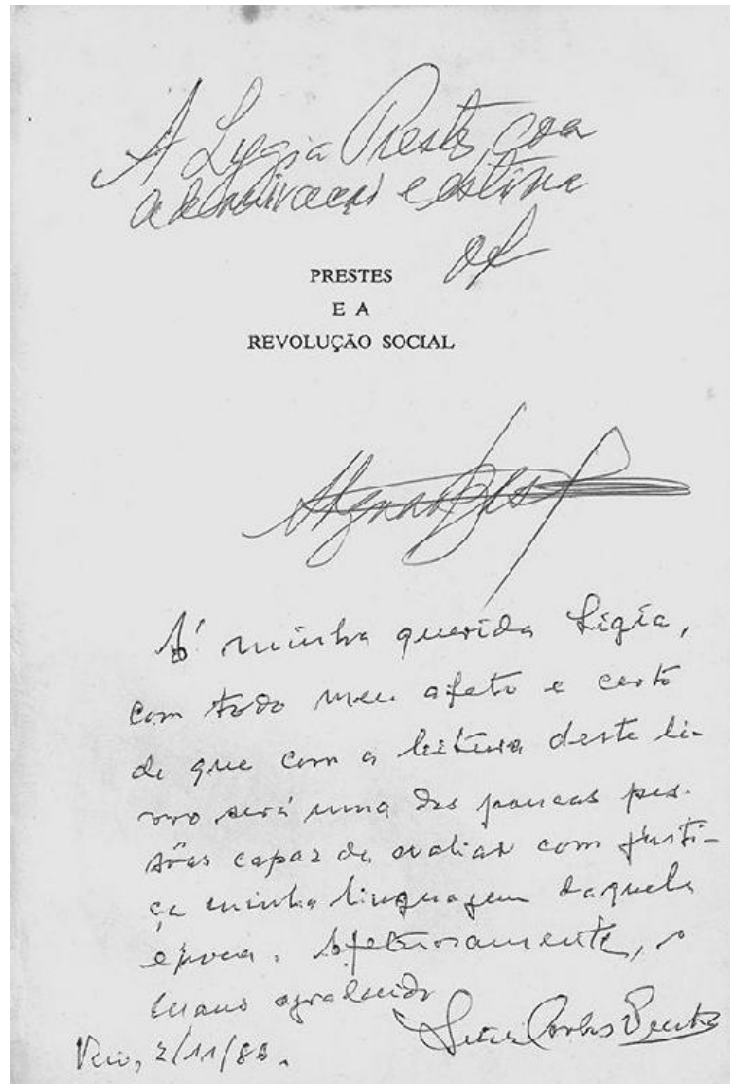 A Lygia Prestes, com
a admiração e estima
do
PRESTES
E A
REVOLUÇÃO SOCIAL
À minha querida Lígia,
com todo meu afeto e certo
de que com a leitura deste li-
vro será uma das poucas pes-
sôas capaz de avaliar com justi-
ça minha linguagem daquela
época. Afetuosamente, o
mano agradecido
Luiz Carlos Prestes
Rio, 2/11/88.